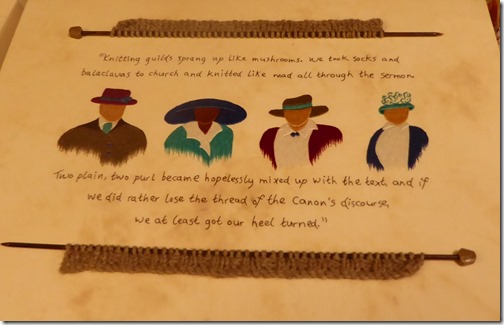 "Knitting guilds sprang up like mushrooms. We took socks and
balaclavas to church and knitted like mad all through the sermon.
Two plain, two purl became hopelessly mixed up with the text, and if
we did rather lose the thread of the Canon's discourse,
we at least got our heel turned."